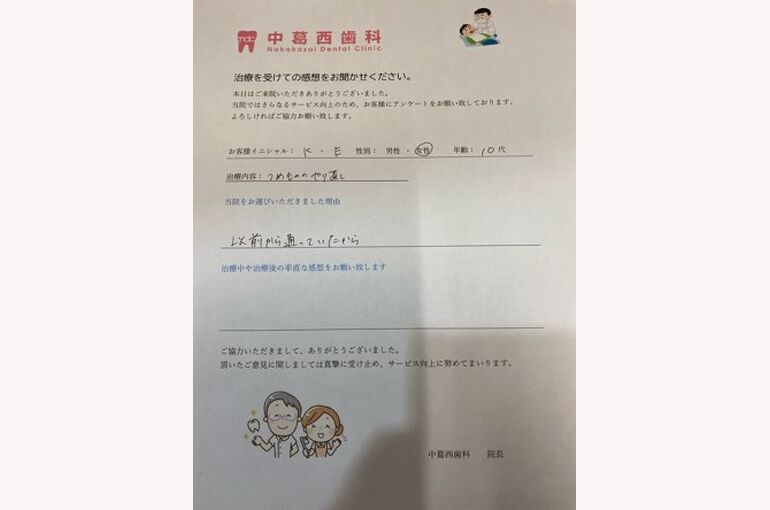 中葛西歯科
Nakakasai Dental Clinic
治療を受けての感想をお聞かせください。
本日はご来院いただきありがとうございました。
当院ではさらなるサービス向上のため、お客様にアンケートをお願い致しております。
よろしければご協力お願い致します。
お客様イニシャル： K ・ E 性別： 男性 ・ 女性 年齢： 10 代
治療内容： つめもののやり直し
当院をお選びいただきました理由
以前から通っていたから
治療中や治療後の率直な感想をお願い致します
ご協力いただきまして、ありがとうございました。
頂いたご意見に関しましては真摯に受け止め、サービス向上に努めてまいります。
中葛西歯科 院長